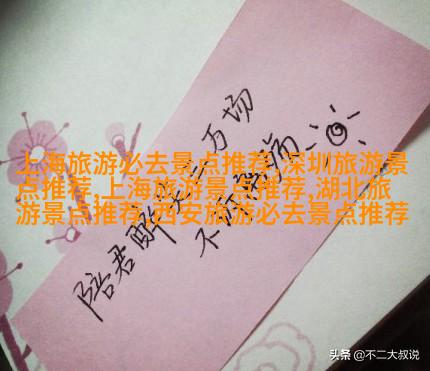 陪君醉笑三万场
不诉离
上海旅游必去景点推荐,深圳旅游景
点推荐,上海旅游景点推荐,湖北旅
游景点推荐,西安旅游必去景点推荐
头条 @不二大叔说